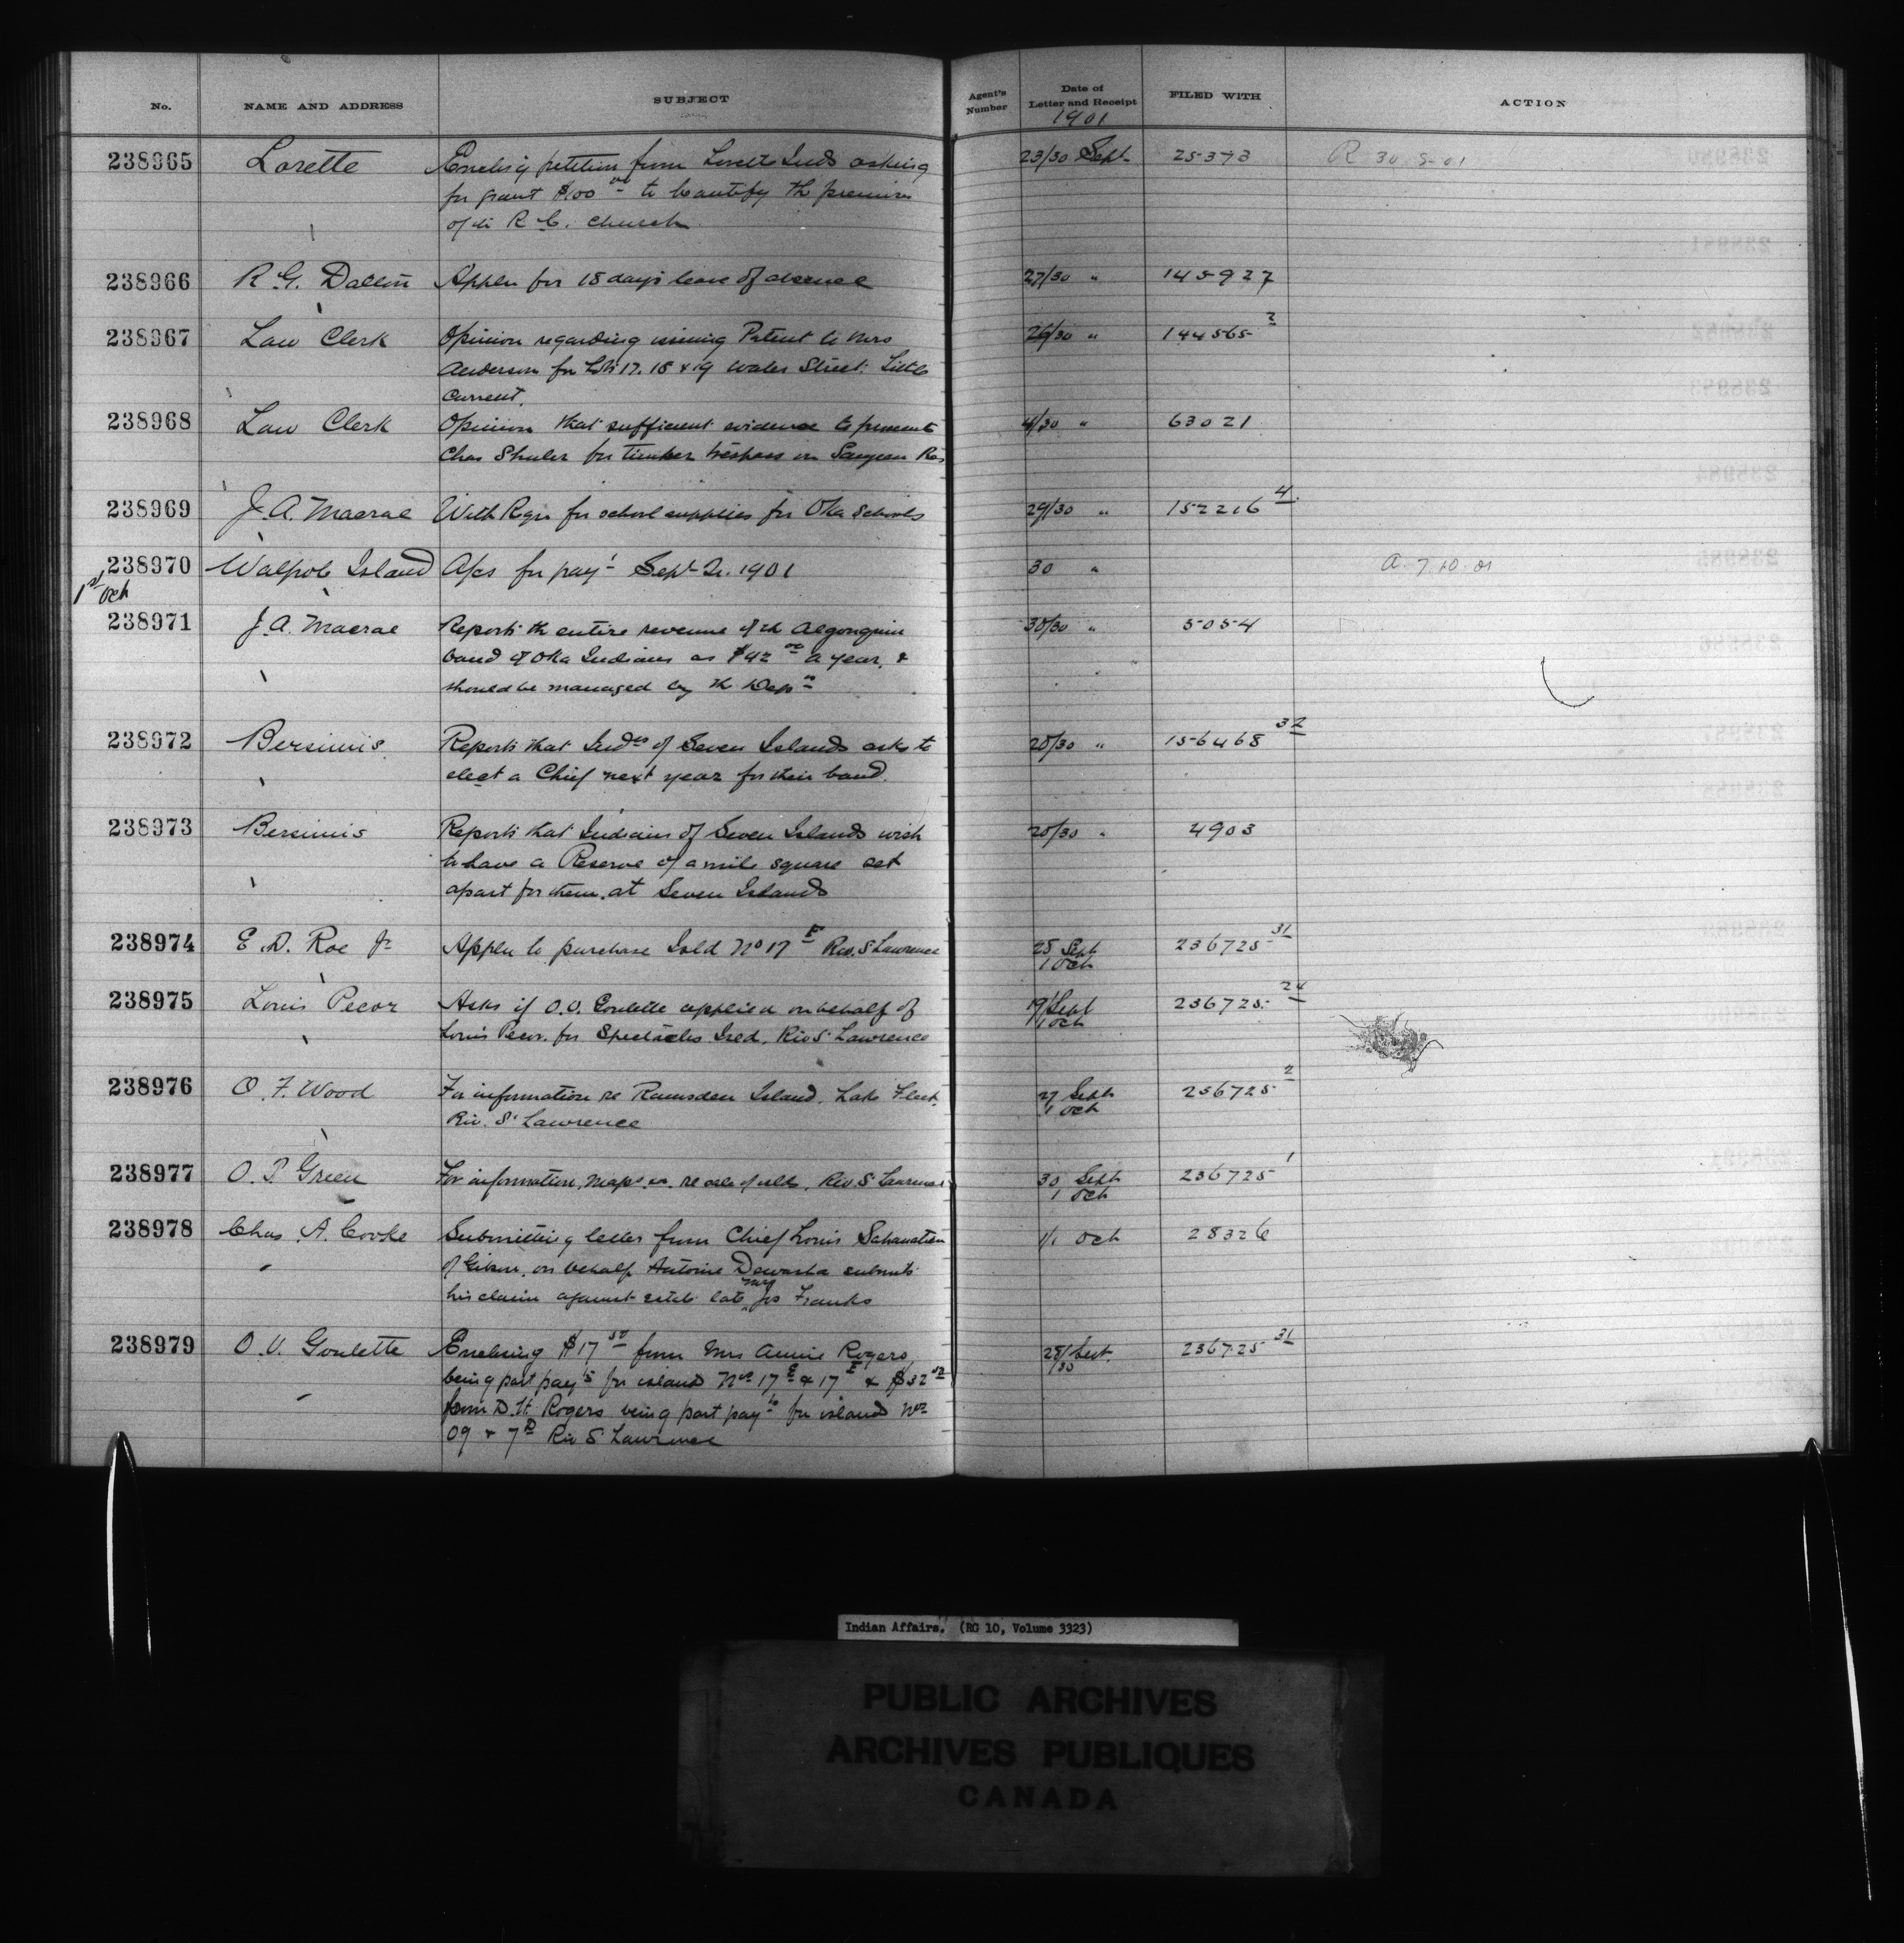 No. NAME AND ADDRESS SUBJECT Agent's Number Date of Letter and Receipt FILED WITH ACTION
1901
238965 Lorette Enclosig petition from Lorette Inds asking 23/30 Sept 25373 R 30 9-01
for grant $100 00 to beautify th premises
of th R. C. Church
238966 R. G. Dalton Appln for 18 days leave of absence 27/30 " 145927
238967 Law Clerk Opinion regarding issuing Patent to Mrs 26/30 " 144565 3
Anderson for Lots 17. 18 & 19 Water Street. Little
Current.
238968 Law Clerk Opinion that sufficient evidence to prosecute 4/30 " 63021
Chas Shuler for timber trespass on Saugeen Res
238969 J. A. Macrae With Reqn for school supplies for Oka Schools 29/30 " 152216 4
238970 Walpole Island A/cs for pay t Sept Qr. 1901 30 " A. 7.10.01
1st Oct
238971 J. A. Macrae Reports th entire revenue of th Algonquin 30/30 " 5054
band of Oka Indians as $42 00 a year, &
should be managed by th Dep
238972 Bersimis Reports that Inds of Seven Islands asks to 20/30 " 156468 32
elect a Chief next year for their band.
238973 Bersimis Reports that Indians of Seven Islands wish 20/30 " 4903
to have a Reserve of a mile square set
apart for them. at Seven Islands
238974 E. D. Roe Jr Appln to purchase Isld No 17 E Riv. St Lawrence 28 Sept 236725 31
1 Oct
238975 Louis Pecor Asks if O. V. Goulette applied on behalf of 19/Sept 236725 24
Louis Pecor. for Spectacles Isld. Riv St Lawrence 1 Oct
238976 O. F. Wood For information re Ramsden Island. Lake Fleet. 27 Sept 236725 2
Riv. St Lawrence 1 Oct
238977 O. P. Green For information, maps re sale of islds, Riv. St Lawrence 30 Sept 236725 1
1 Oct
238978 Chas. A. Cooke Submitting letter from Chief Louis Sahanatien 1/1 Oct 28326
of Gibson, on behalf Antoine Dewasha submits
his claim against estate late Mrs Jos Franks
238979 O. V. Goulette Enclosing $17 50 from Mrs Annie Rogers 28/Sept. 236725 31
being part pay ts for island Nos 17 E & 17 F & $32 50 30
from D. H. Rogers being part pay ts for island Nos
09 & 7 D Riv St Lawrence
Indian Affairs. (RG 10, Volume 3323)
PUBLIC ARCHIVES
ARCHIVES PUBLIQUES
CANADA